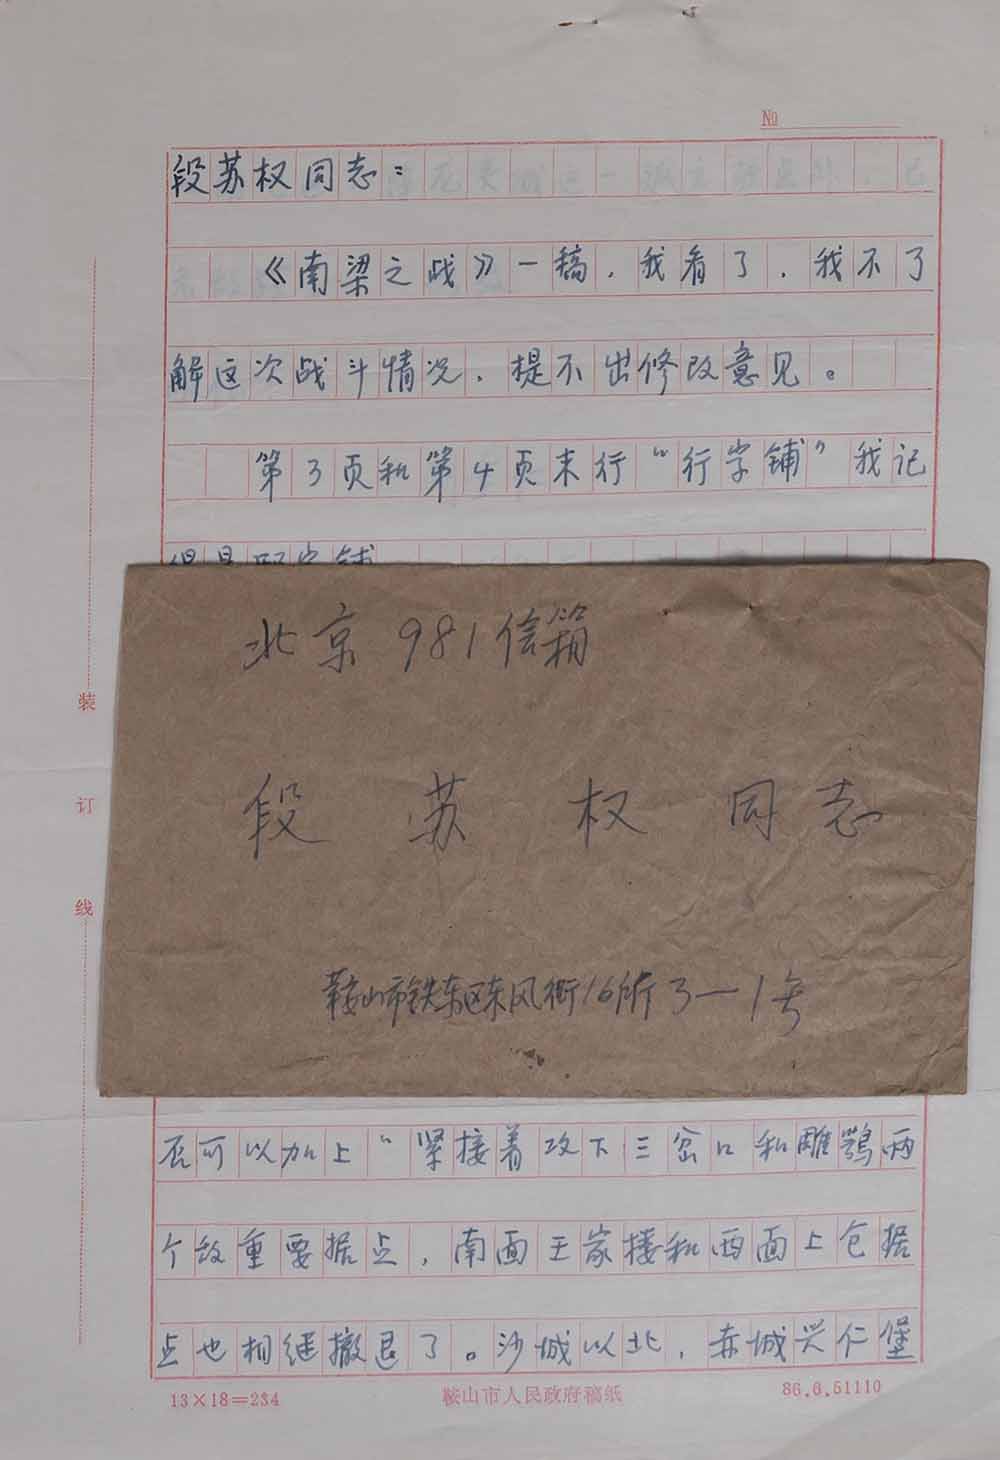 No
段苏权同志：
《南梁之战》一稿，我看了，我不了
解这次战斗情况，提不出修改意见。
第3页和第4页末行“行字铺”我记
北京981信箱
段苏权同志
鞍山市铁东区东风街16所3—1号
装
订
线
否可以加上“紧接着攻下三岔口和雕鹗两
个敌重要据点，南面王家楼和西面上仓据
点也相继撤退了。沙城以北，赤城兴仁堡
13×18=234
鞍山市人民政府稿纸
86.6.51110